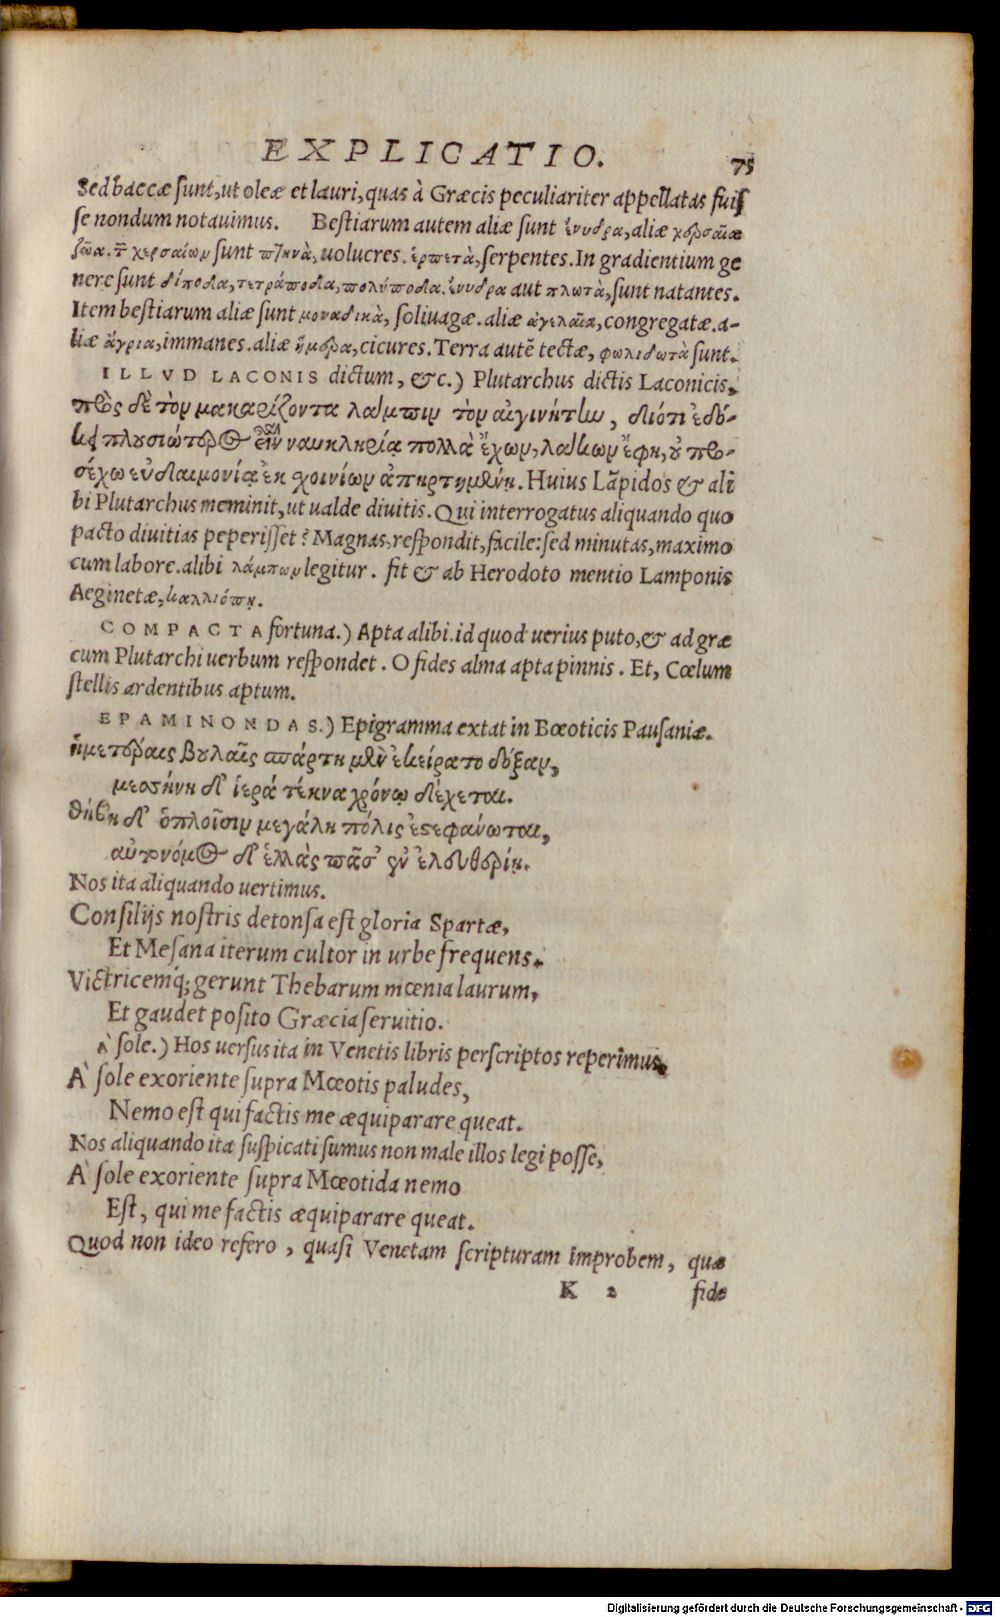 EXPLICATIO. 75
Sed baccæ sunt, ut oleæ et lauri, quas à Græcis peculiariter appellatas fuis
se nondum notauimus. Bestiarum autem aliæ sunt ἔνυδρα, aliæ χερσαῖα
ζῶα. τῶν χερσαίων sunt πτηνὰ, uolucres. ἑρπετὰ, serpentes. In gradientium ge
nere sunt δίποδα, τετράποδα, πολύποδα. ἔνυδρα aut πλωτὰ, sunt natantes.
Item bestiarum aliæ sunt μοναδικὰ, soliuagæ. aliæ ἀγελαῖα, congregatæ. a-
liæ ἄγρια, immanes. aliæ ἥμερα, cicures. Terra autẽ tectæ, φωλιδωτὰ sunt.
ILLVD LACONIS dictum, &c.) Plutarchus dictis Laconicis,
πρὸς δὲ τὸν μακαρίζοντα λάμπιν τὸν αἰγινήτην, διότι ἐδό-
κει πλουσιώτατος εἶναι ναυκληρία πολλὰ ἔχων, λάκων ἔφη, οὐ προ-
σέχω εὐδαιμονίᾳ ἐκ χοινίων ἀπηρτημένῃ. Huius Lãpidos & ali
bi Plutarchus meminit, ut ualde diuitis. Qui interrogatus aliquando quo
pacto diuitias peperisset? Magnas, respondit, facile: sed minutas, maximo
cum labore. alibi λάμπων legitur. fit & ab Herodoto mentio Lamponis
Aeginetæ, καλλιόπῃ.
COMPACTA fortuna.) Apta alibi. id quod uerius puto, & ad græ
cum Plutarchi uerbum respondet. O fides alma apta pinnis. Et, Cœlum
stellis ardentibus aptum.
EPAMINONDAS.) Epigramma extat in Bœoticis Pausaniæ.
ἡμετέραις βουλαῖς σπάρτη μὲν ἐκείρατο δόξαν,
μεσσήνη δ' ἱερά τέκνα χρόνῳ δέχεται.
θήβη δ' ὁπλοῖσιν μεγάλη πόλις ἐστεφάνωται,
αὐτόνομος δ' ἑλλὰς πᾶσ' ἐν ἐλευθερίῃ.
Nos ita aliquando uertimus.
Consilijs nostris detonsa est gloria Spartæ,
Et Mesana iterum cultor in urbe frequens.
Victricemq́; gerunt Thebarum mœnia laurum,
Et gaudet posito Græcia seruitio.
À sole.) Hos uersus ita in Venetis libris perscriptos reperimus.
À sole exoriente supra Mœotis paludes,
Nemo est qui factis me æquiparare queat.
Nos aliquando ita suspicati sumus non male illos legi posse,
À sole exoriente supra Mœotida nemo
Est, qui me factis æquiparare queat.
Quod non ideo refero, quasi Venetam scripturam improbem, quæ
K 2 fide
Digitalisierung gefördert durch die Deutsche Forschungsgemeinschaft - DFG